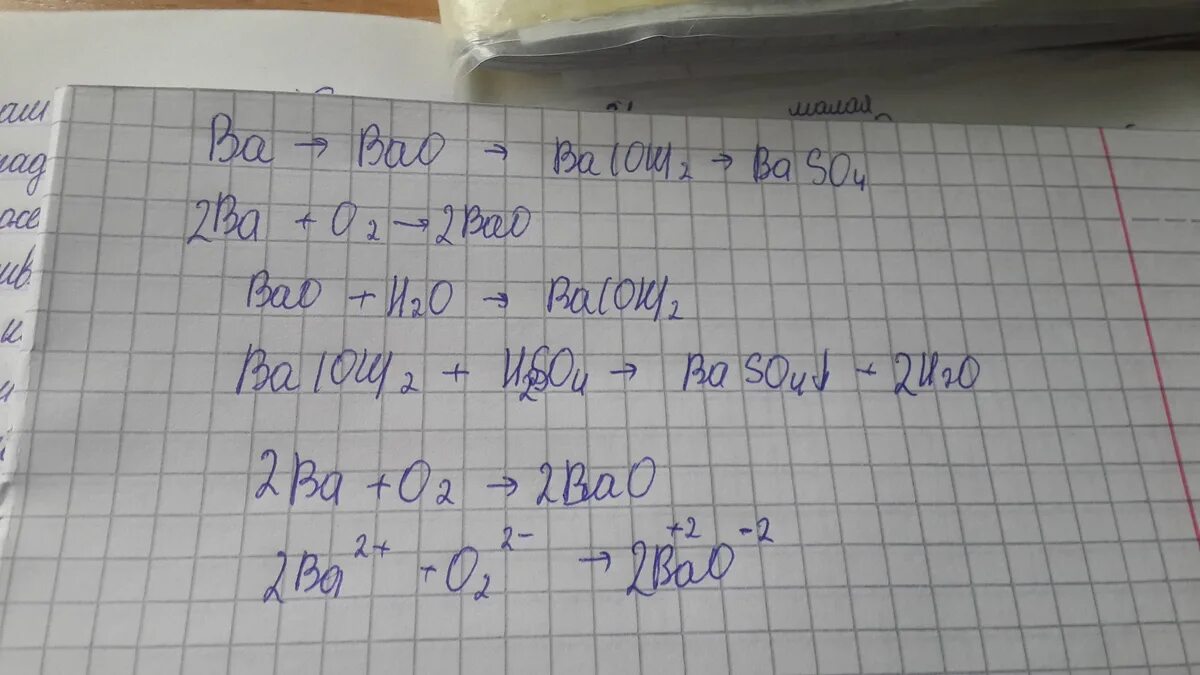 малая
Ba → BaO → Ba(OH)2 → BaSO4
2Ba + O2 → 2BaO
BaO + H2O → Ba(OH)2
Ba(OH)2 + H2SO4 → BaSO4↓ + 2H2O
2Ba + O2 → 2BaO
2Ba²⁺ + O2²⁻ → 2Ba⁺²O⁻²